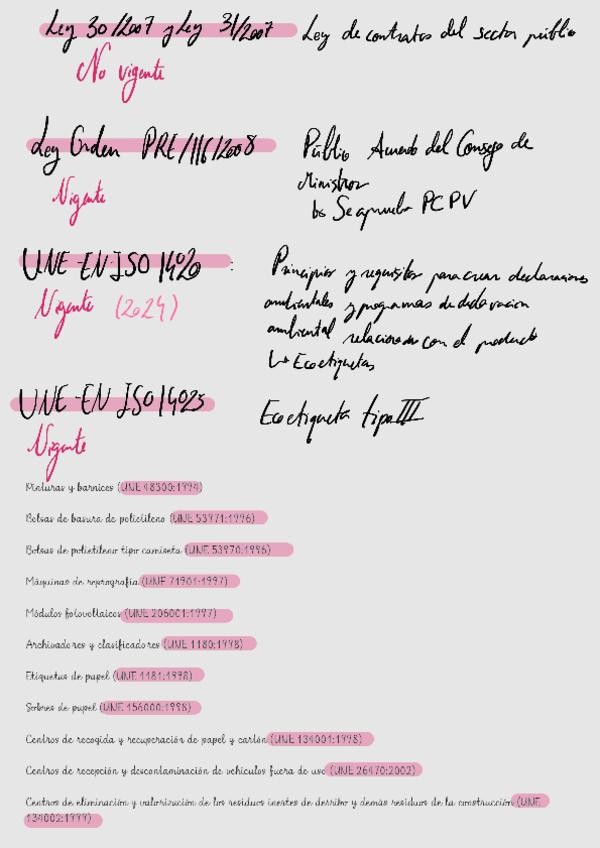 Ley 30/2007 y Ley 31/2007 Ley de contratos del sector público
No vigente
Ley Orden PRE/116/2008 Público Acuerdo del Consejo de
Vigente Ministros
↳ Se aprueba PCPV
UNE-EN-ISO 14020 : Principios y requisitos para crear declaraciones
Vigente (2024) ambientales y programas de declaracion
ambiental relacionados con el producto
↳ Ecoetiquetas
UNE-EN ISO 14025 Ecoetiqueta tipo III
Vigente
Pinturas y barnices (UNE 48300:1994)
Bolsas de basura de polietileno (UNE 53971:1996)
Bolsas de polietileno tipo camiseta (UNE 53970:1996)
Máquinas de reprografía (UNE 71901:1997)
Módulos fotovoltaicos (UNE 206001:1997)
Archivadores y clasificadores (UNE 1180:1998)
Etiquetas de papel (UNE 1181:1998)
Sobres de papel (UNE 156000:1998)
Centros de recogida y recuperación de papel y cartón (UNE 134001:1998)
Centros de recepción y descontaminación de vehículos fuera de uso (UNE 26470:2002)
Centros de eliminación y valorización de los residuos inertes de derribo y demás residuos de la construcción (UNE
134002:1999)